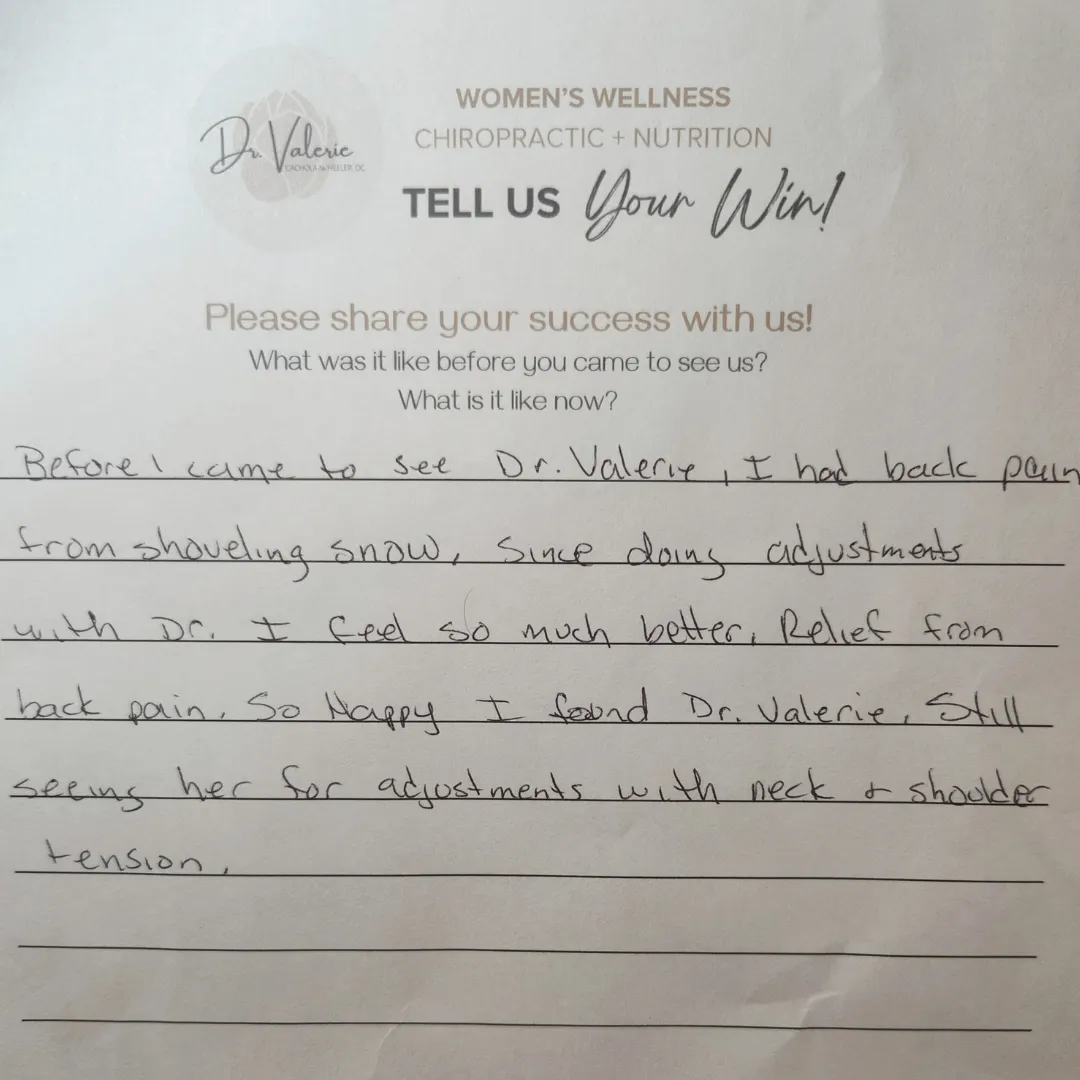 Dr. Valerie
WOMEN'S WELLNESS
CHIROPRACTIC + NUTRITION
TELL US Your Win!
Please share your success with us!
What was it like before you came to see us?
What is it like now?
Before I came to see Dr. Valerie, I had back pain
from shoveling snow, Since doing adjustments
with Dr. I feel so much better. Relief from
back pain. So Happy I found Dr. Valerie. Still
seeing her for adjustments with neck & shoulder
tension.